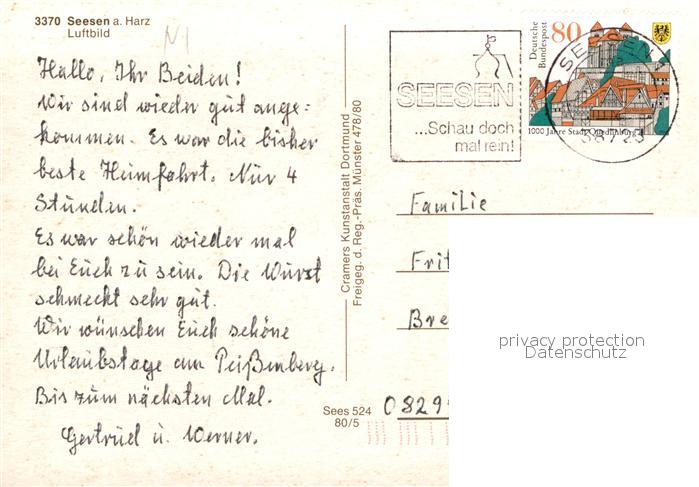 3370 Seesen a. Harz
Luftbild
N1
Hallo, Ihr Beiden!
Wir sind wieder gut ange=
kommen. Es war die bisher
beste Heimfahrt. Nur 4
Stunden.
Es war schön wieder mal
bei Euch zu sein. Die Wurst
schmeckt sehr gut.
Wir wünschen Euch schöne
Urlaubstage am Peißenberg.
Bis zum nächsten Mal.
Gertrud u. Werner.
Cramers Kunstanstalt Dortmund
Freigeg. d. Reg.-Präs. Münster 478/80
Sees 524
80/5
SEESEN
...Schau doch
mal rein!
Deutsche
Bundespost
80
1000 Jahre Stadt Quedlinburg
SEESEN
38723
Familie
Frit
Bre
0829
privacy protection
Datenschutz